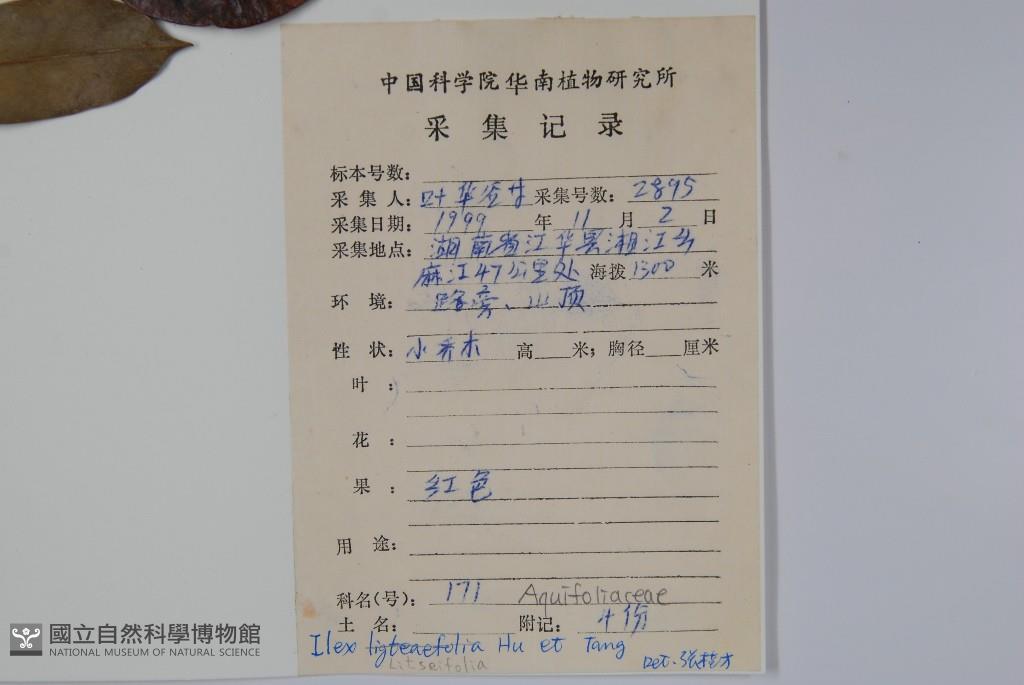 中国科学院华南植物研究所
采集记录
标本号数:
采集人: 叶华谷 采集号数: 2895
采集日期: 1999 年 11 月 2 日
采集地点: 湖南省江华县湘江乡
麻江47公里处 海拨 1300 米
环境: 路旁、山顶
性状: 小乔木 高 米; 胸径 厘米
叶:
花:
果: 红色
用途:
科名(号): 171 Aquifoliaceae
土名: 附记: 4份
Ilex ligteaefolia Hu et Tang
Litseifolia
Det. 张桂才
國立自然科學博物館
NATIONAL MUSEUM OF NATURAL SCIENCE